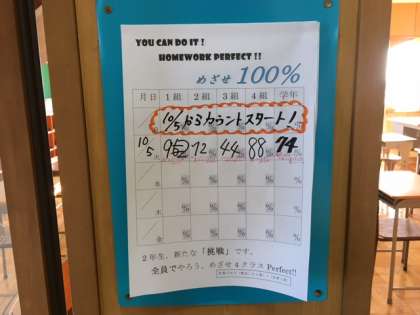 YOU CAN DO IT !
HOMEWORK PERFECT !!
めざせ 100%
月日 1組 2組 3組 4組 学年
10/5からカウントスタート!
10/5 72 44 88 74
/水 % % % % %
/木 % % % % %
/金 % % % % %
2年生、新たな「挑戦」です。
全員でやろう、めざせ4クラス Perfect!!